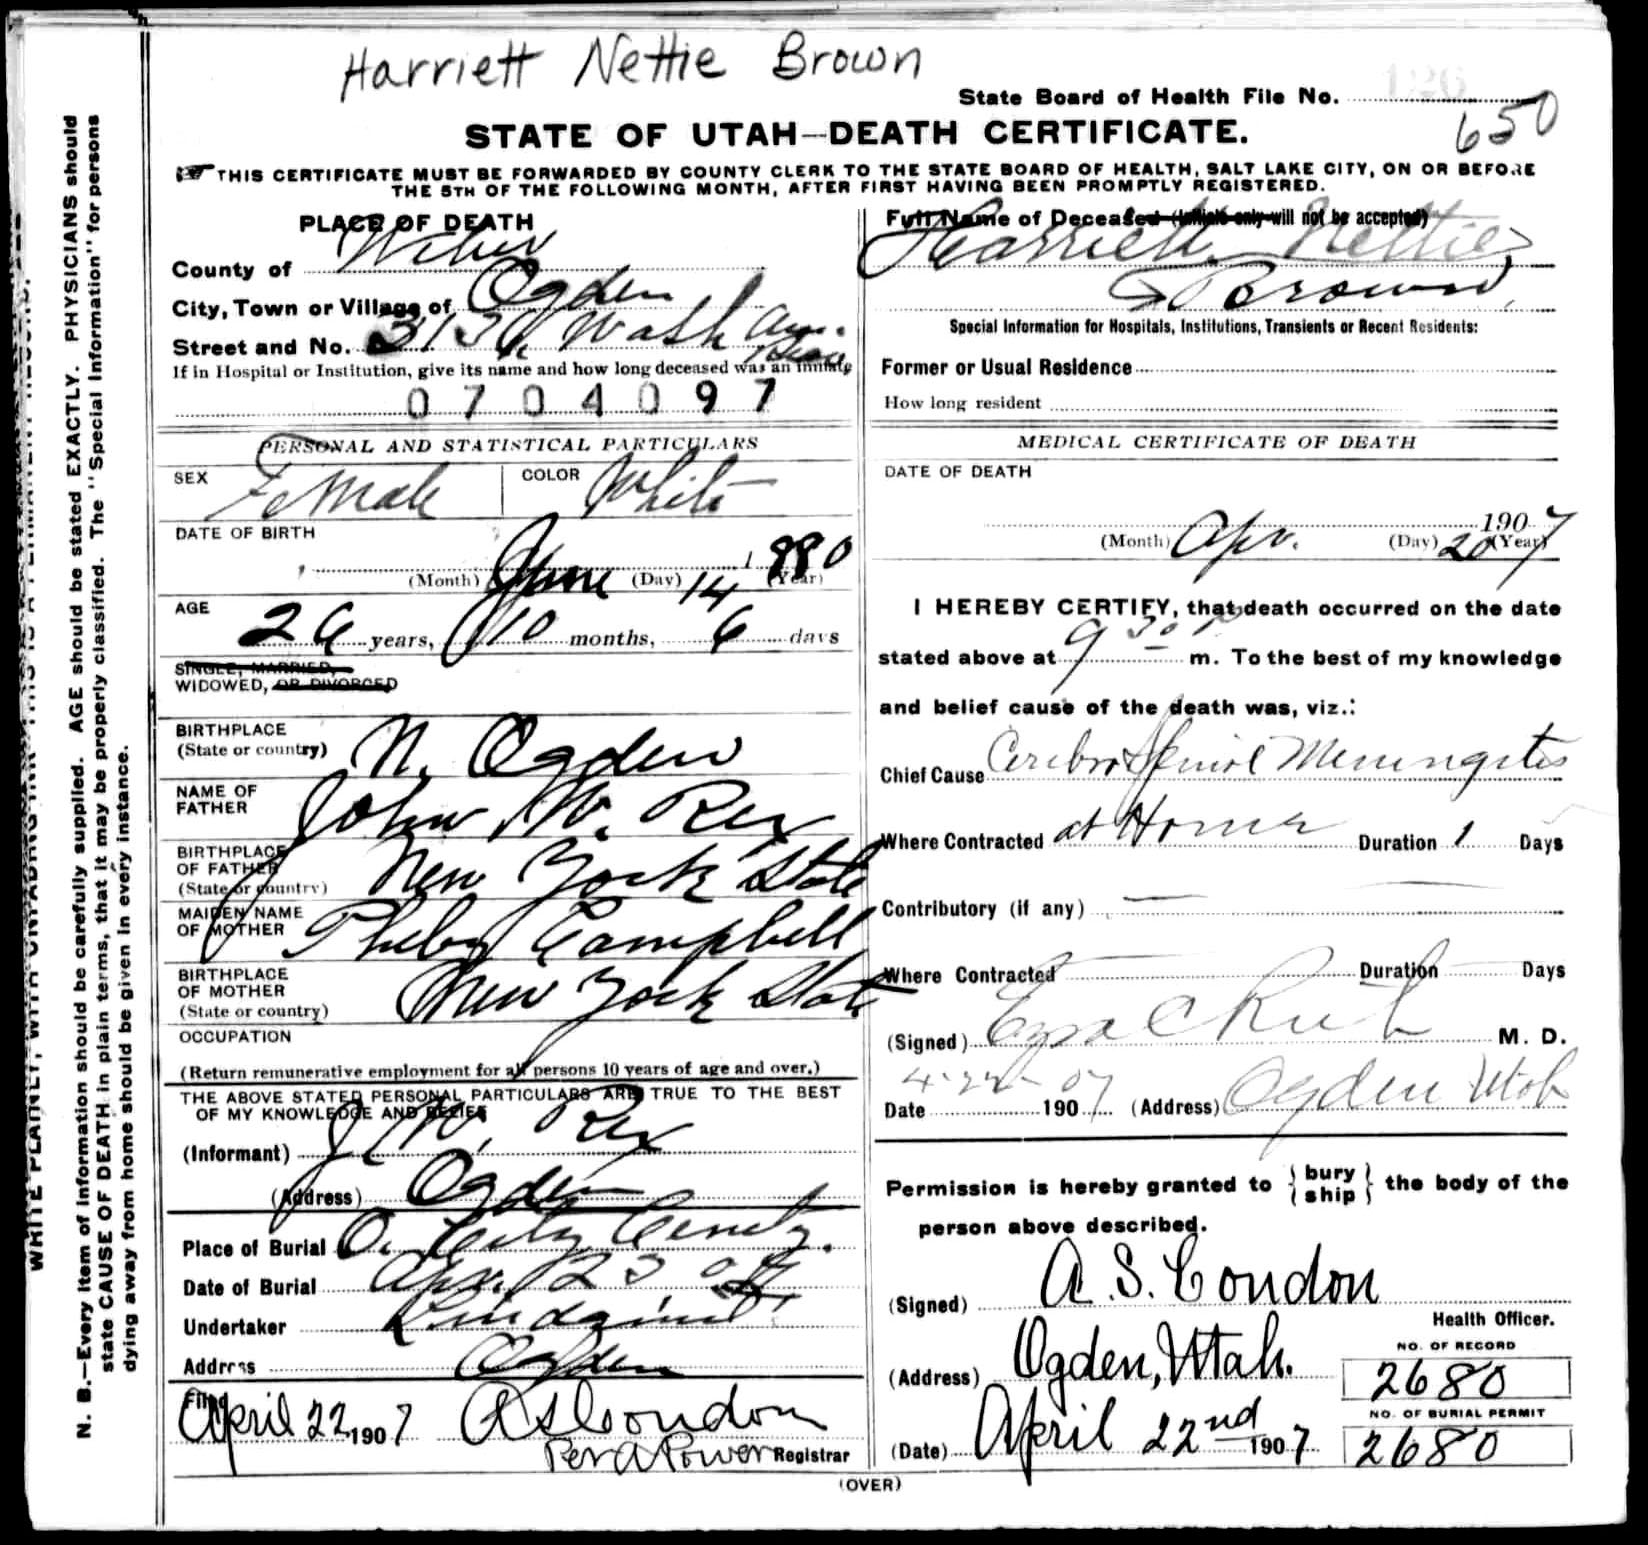 Harriett Nettie Brown
State Board of Health File No. 126
650
STATE OF UTAH—DEATH CERTIFICATE.
THIS CERTIFICATE MUST BE FORWARDED BY COUNTY CLERK TO THE STATE BOARD OF HEALTH, SALT LAKE CITY, ON OR BEFORE
THE 5TH OF THE FOLLOWING MONTH, AFTER FIRST HAVING BEEN PROMPTLY REGISTERED.
N. B.—Every item of information should be carefully supplied. AGE should be stated EXACTLY. PHYSICIANS should
state CAUSE OF DEATH in plain terms, that it may be properly classified. The "Special Information" for persons
dying away from home should be given in every instance.
PLACE OF DEATH
County of Weber
City, Town or Village of Ogden
Street and No. Wash Ave.
If in Hospital or Institution, give its name and how long deceased was an inmate
0704097
PERSONAL AND STATISTICAL PARTICULARS
SEX Female COLOR White
DATE OF BIRTH
(Month) June (Day) 14 1880 (Year)
AGE
26 years, 10 months, 6 days
SINGLE, MARRIED,
WIDOWED, OR DIVORCED
BIRTHPLACE
(State or country) N. Ogden
NAME OF
FATHER John W. Rex
BIRTHPLACE
OF FATHER
(State or country) New York State
MAIDEN NAME
OF MOTHER Pheby Campbell
BIRTHPLACE
OF MOTHER
(State or country) New York State
OCCUPATION
(Return remunerative employment for all persons 10 years of age and over.)
THE ABOVE STATED PERSONAL PARTICULARS ARE TRUE TO THE BEST
OF MY KNOWLEDGE AND BELIEF
(Informant) J. W. Rex
(Address) Ogden
Place of Burial O. City Cemety.
Date of Burial Apr. 23 07
Undertaker
Address Ogden
Filed
April 22 1907 A S Condon
Per A Power Registrar
Full Name of Deceased (Initials only will not be accepted)
Harriett Nettie
Brown
Special Information for Hospitals, Institutions, Transients or Recent Residents:
Former or Usual Residence
How long resident
MEDICAL CERTIFICATE OF DEATH
DATE OF DEATH
(Month) Apr. (Day) 20 1907 (Year)
I HEREBY CERTIFY, that death occurred on the date
stated above at 9 30 P m. To the best of my knowledge
and belief cause of the death was, viz.:
Chief Cause Cerebro Spinal Meningitis
Where Contracted at Home Duration 1 Days
Contributory (if any) —
Where Contracted Duration Days
(Signed) Ezra C Rich M. D.
Date 4-22-07 1907 (Address) Ogden Utah
Permission is hereby granted to { bury ship } the body of the
person above described.
(Signed) A. S. Condon
Health Officer.
(Address) Ogden, Utah.
NO. OF RECORD
2680
(Date) April 22nd 1907
NO. OF BURIAL PERMIT
2680
(OVER)